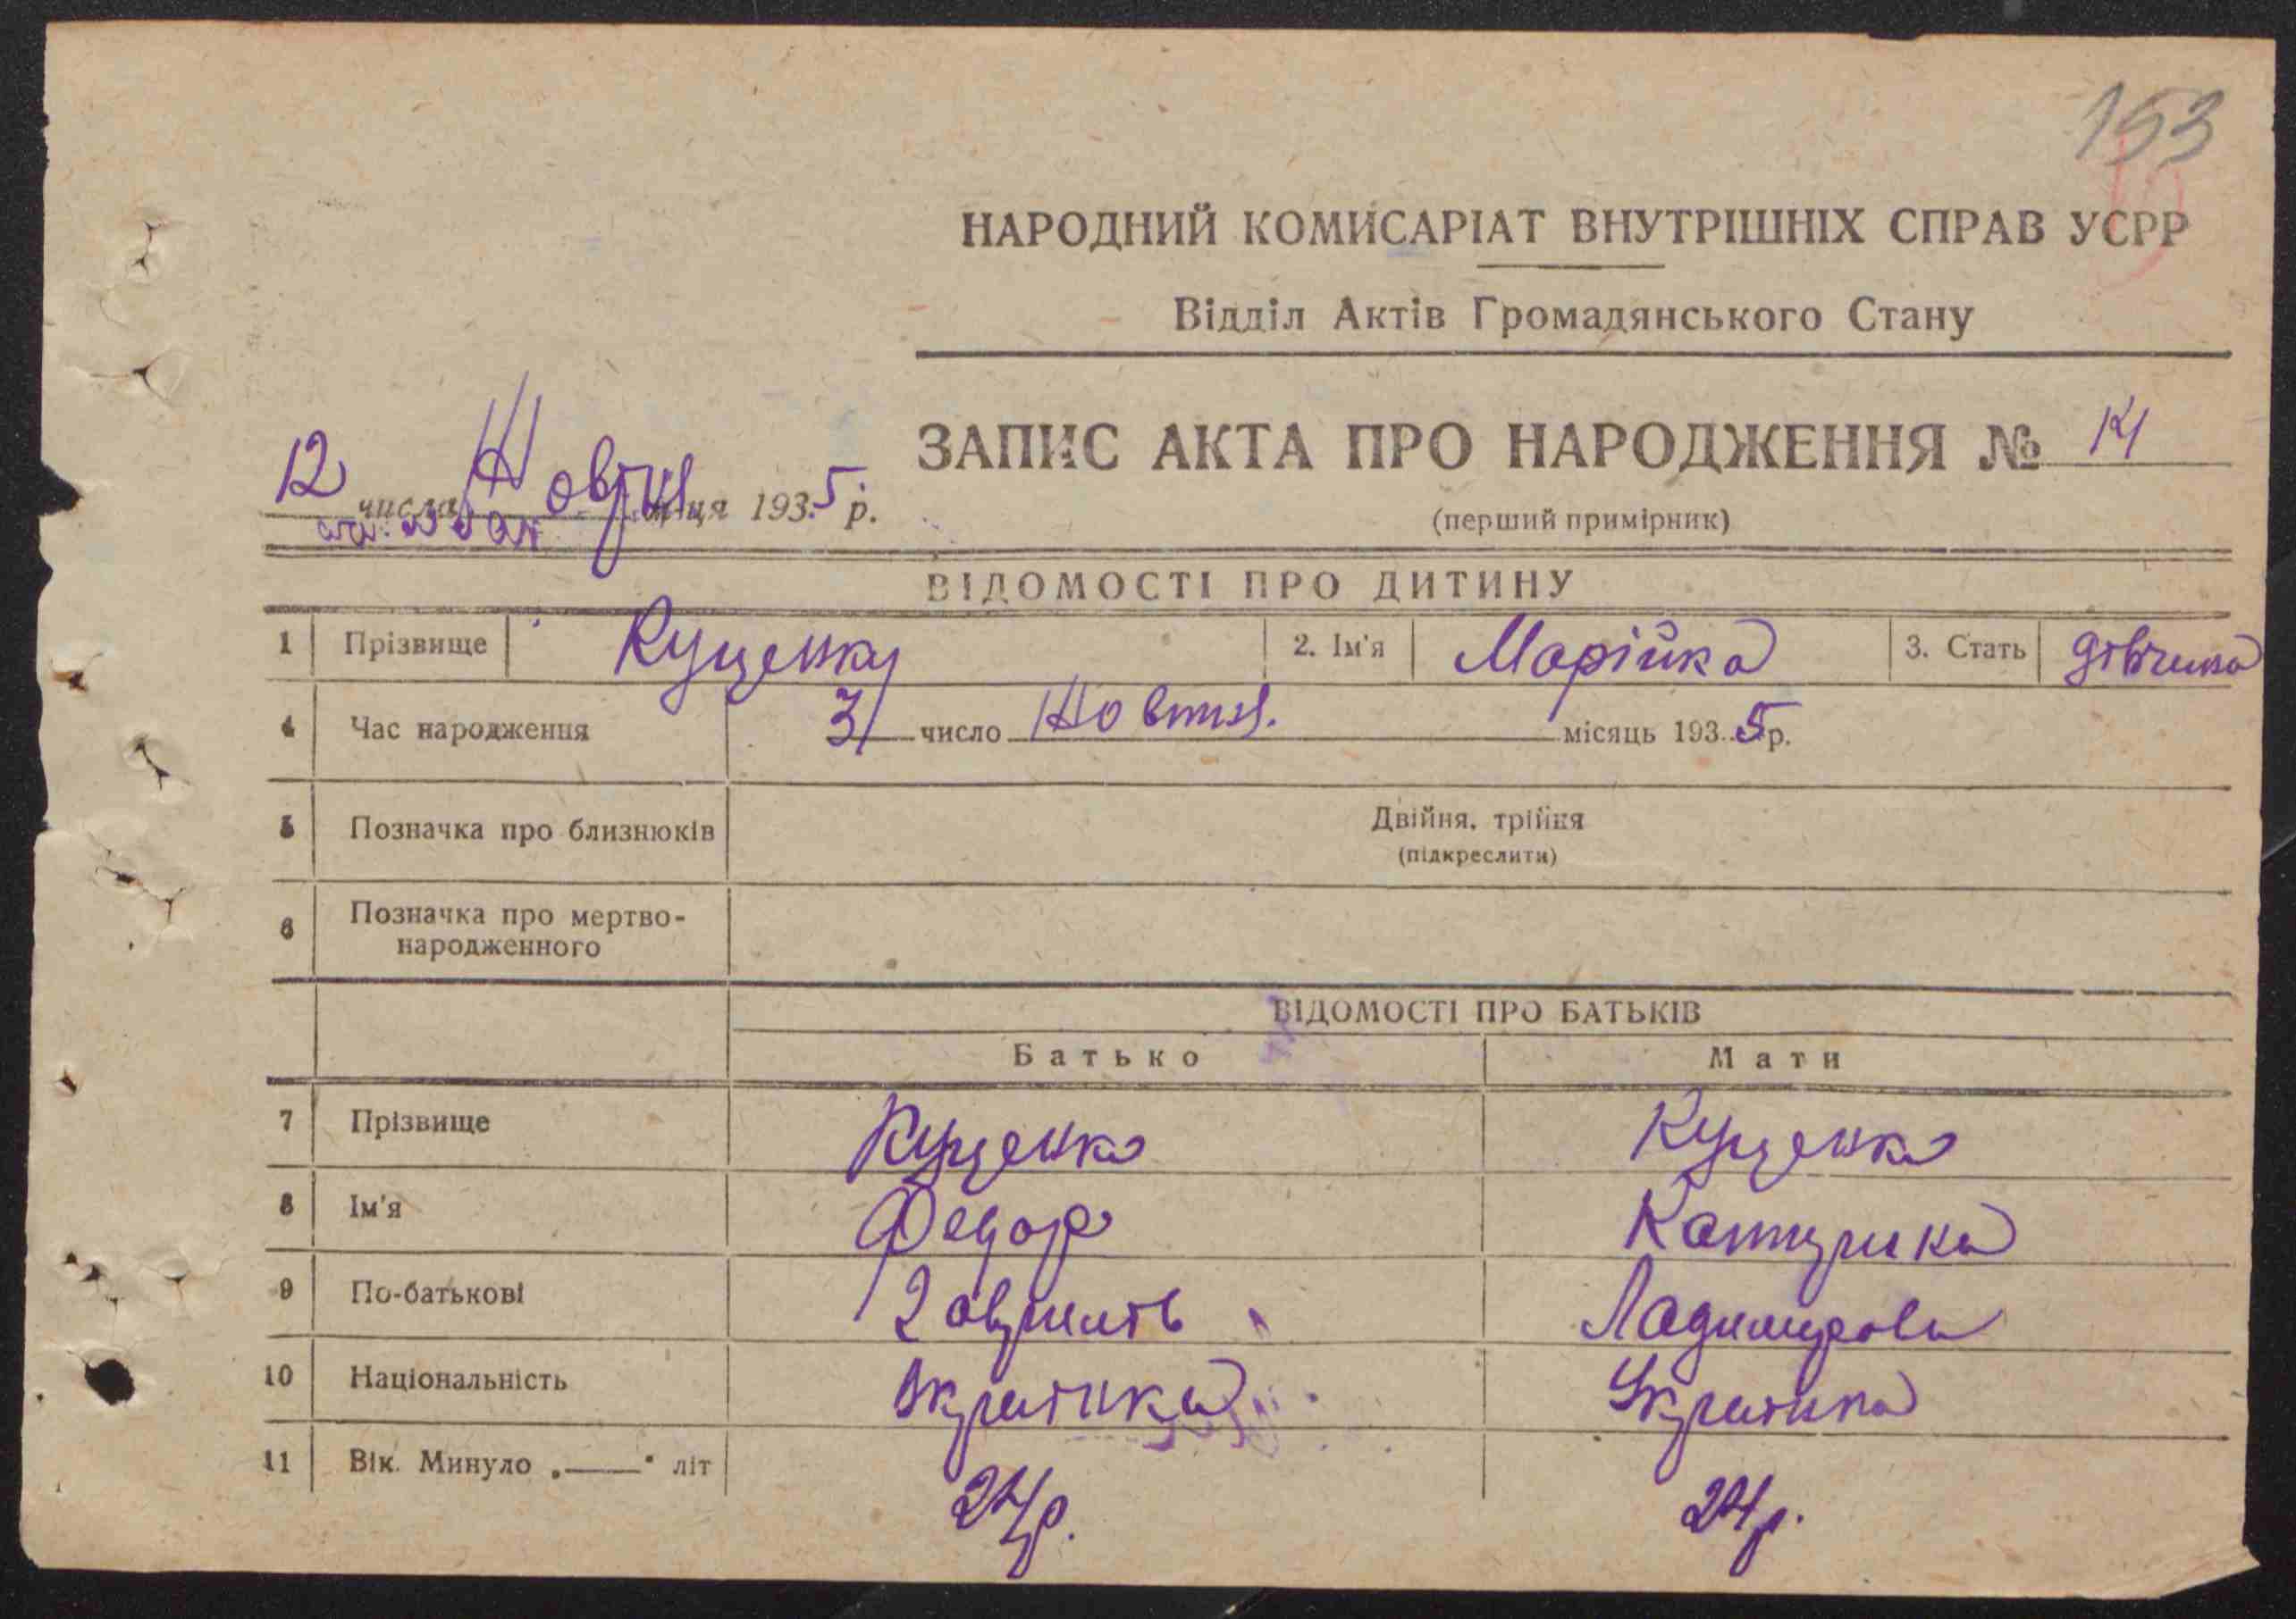 153
НАРОДНИЙ КОМИСАРІАТ ВНУТРІШНІХ СПРАВ УСРР
Відділ Актів Громадянського Стану
ЗАПИС АКТА ПРО НАРОДЖЕННЯ № 14
12 числа Жовтня місяця 1935 р.
(перший примірник)
ВІДОМОСТІ ПРО ДИТИНУ
1 Прізвище Куценку 2. Ім'я Марійка 3. Стать дівчина
4 Час народження 3 число Жовтня. місяць 1935 р.
5 Позначка про близнюків Двійня, трійня
(підкреслити)
6 Позначка про мертво-
народженного
ВІДОМОСТІ ПРО БАТЬКІВ
Батько Мати
7 Прізвище Куценко Куценко
8 Ім'я Федор Катирика
9 По-батькові Гаврилів Ладимирова
10 Національність Украінка Украінка
11 Вік. Минуло „—“ літ 24 р. 24 р.